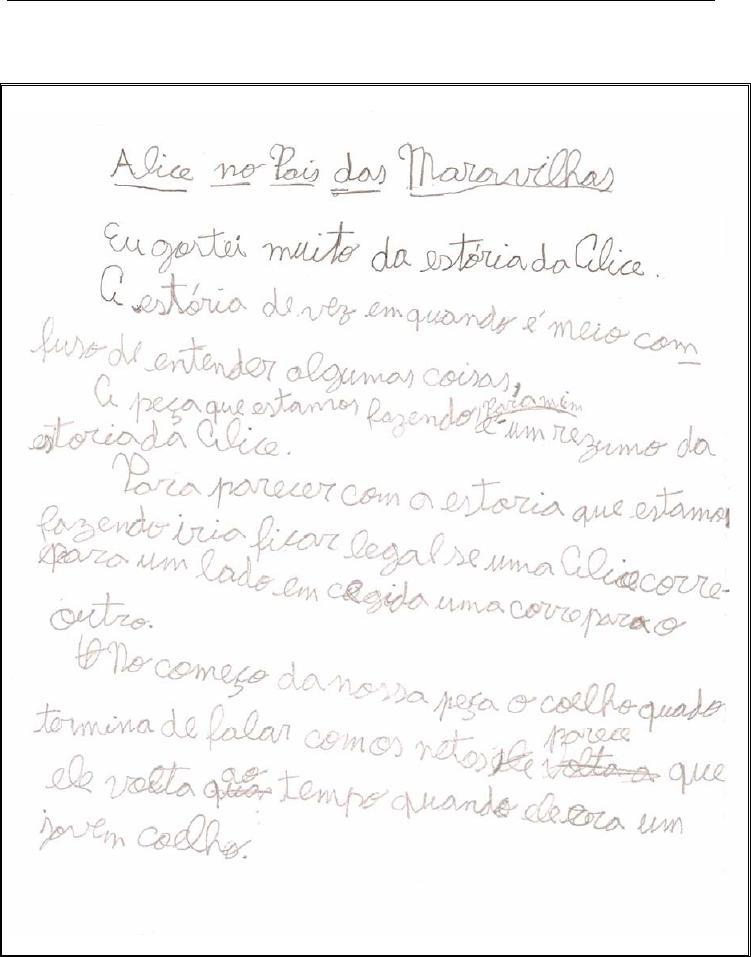 Alice no Pais das Maravilhas
Eu gostei muito da estória da Alice.
A estória de vez em quando é meio com
fuso de entender algumas coisas,
A peça que estamos fazendo para mim é um rezumo da
estoria da Alice.
Para parecer com a estoria que estamos
fazendo iria ficar legal se uma Alice corre-
para um lado em cegida uma corre para o
outro.
No começo da nossa peça o coelho quado
termina de falar com os netos ele parece volta a que
ele volta ao tempo quando ele era um
jovem coelho.